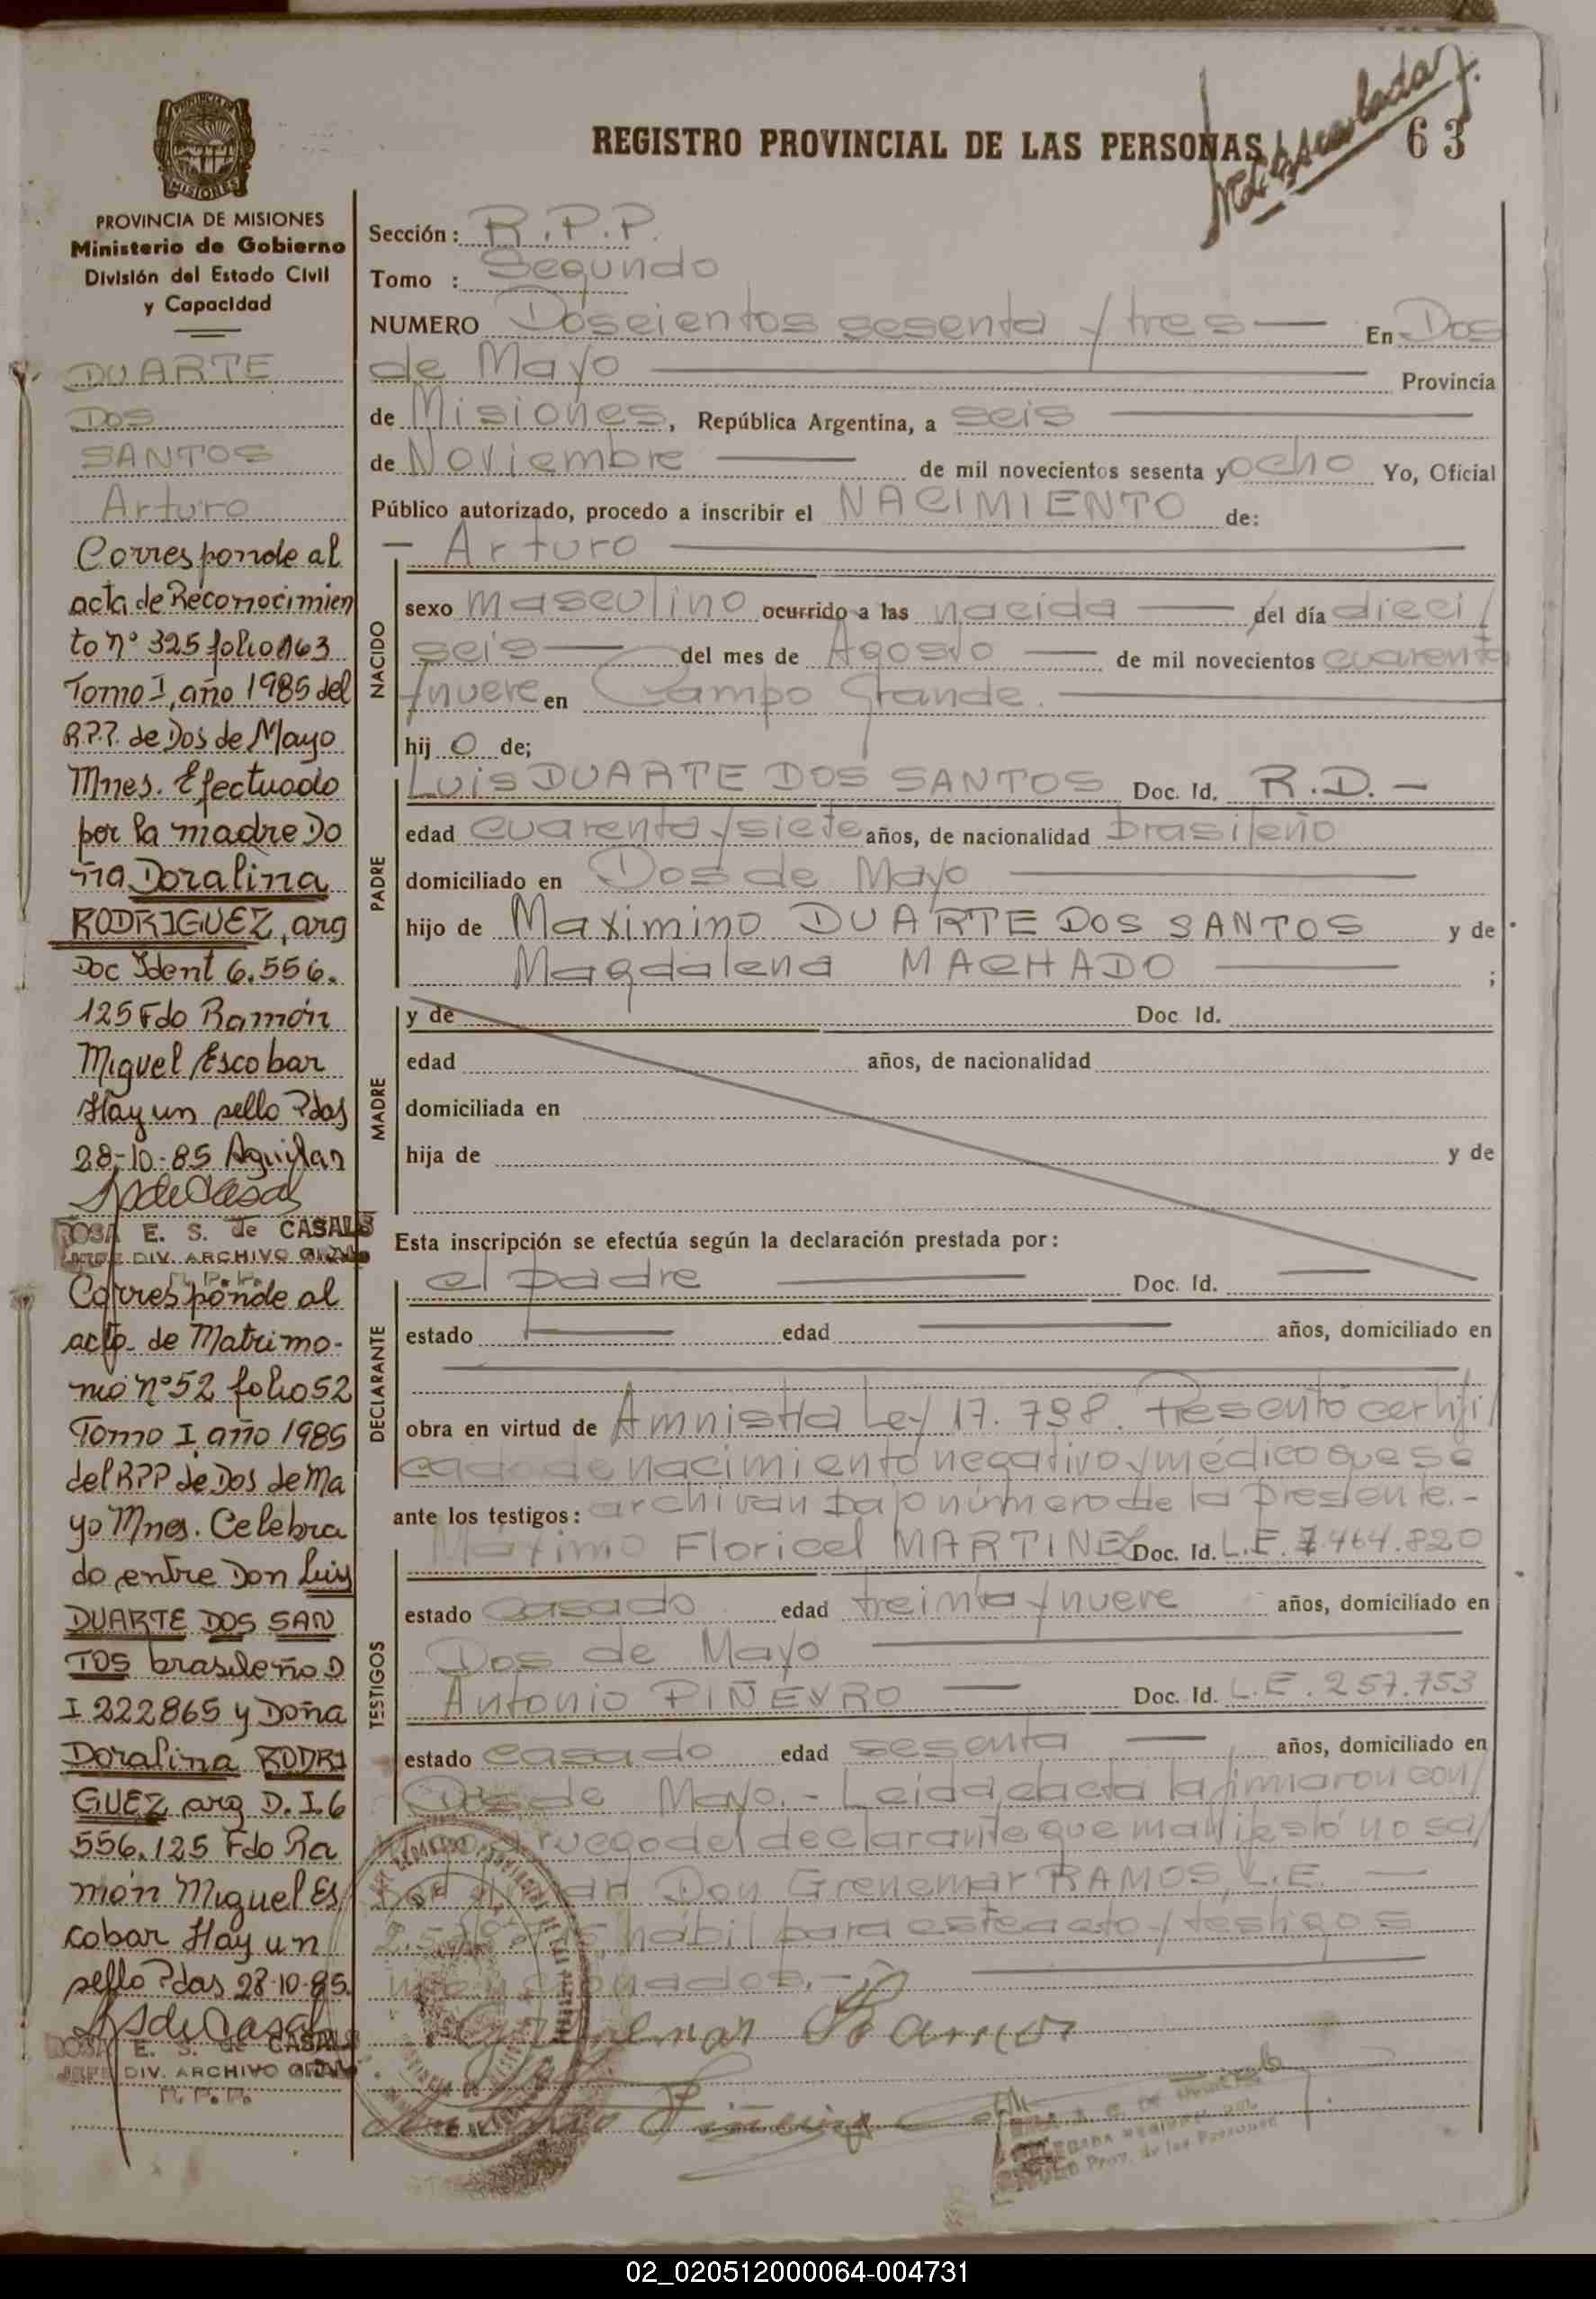 PROVINCIA DE MISIONES
PROVINCIA DE MISIONES
Ministerio de Gobierno
División del Estado Civil
y Capacidad
DUARTE
DOS
SANTOS
Arturo
Corresponde al
acta de Reconocimien
to nº 325 folio 163
Tomo I, año 1985 del
R.P.P. de Dos de Mayo
Mnes. Efectuado
por la madre Do
ña Doralina
RODRIGUEZ, arg
Doc Ident 6.556.
125 Fdo Ramón
Miguel Escobar
Hay un sello Pdas
28-10-85
ROSA E. S. de CASALS
JEFE DIV. ARCHIVO GRAL
R. P. P.
Corresponde al
acto de Matrimo-
nio nº 52 folio 52
Tomo I año 1985
del RPP de Dos de Ma
yo Mnes. Celebra
do entre Don Luis
DUARTE DOS SAN
TOS brasileño D
I 222865 y Doña
Doralina RODRI
GUEZ arg D.I. 6
556.125 Fdo Ra
món Miguel Es
cobar Hay un
sello Pdas 28-10-85.
ROSA E. S. de CASALS
JEFE DIV. ARCHIVO GRAL
R. P. P.
REGISTRO PROVINCIAL DE LAS PERSONAS
63
Sección: R.P.P.
Tomo : Segundo
NUMERO Doscientos sesenta y tres — En Dos
de Mayo — Provincia
de Misiones, República Argentina, a seis —
de Noviembre — de mil novecientos sesenta y ocho Yo, Oficial
Público autorizado, procedo a inscribir el NACIMIENTO de:
— Arturo —
NACIDO
sexo masculino ocurrido a las nacida — del día dieci/
seis — del mes de Agosto — de mil novecientos cuarenta
y nueve en Campo Grande. —
hij o de;
PADRE
Luis DUARTE DOS SANTOS Doc. Id. R.D. —
edad cuarenta y siete años, de nacionalidad brasileño
domiciliado en Dos de Mayo —
hijo de Maximino DUARTE DOS SANTOS y de
Magdalena MACHADO — ;
MADRE
y de Doc. Id.
edad años, de nacionalidad
domiciliada en
hija de y de
Esta inscripción se efectúa según la declaración prestada por:
DECLARANTE
el padre — Doc. Id. —
estado — edad — años, domiciliado en
—
obra en virtud de Amnistia Ley 17.798. Presentó certifi/
cado de nacimiento negativo y médico que se
ante los testigos: archivan bajo número de la presente.-
TESTIGOS
Máximo Floricel MARTINEZ Doc. Id. L.E. 7.464.820
estado casado edad treinta y nueve años, domiciliado en
Dos de Mayo —
Antonio PIÑEYRO — Doc. Id. L.E. 257.753
estado casado edad sesenta — años, domiciliado en
Dos de Mayo.- Leida el acta la firmaron con/
ruego del declarante que manifestó no sa/
Don Grenemar RAMOS, L.E. —
hábil para este acto y testigos
mencionados.- —
Ramos
Prov. de las Personas
02_020512000064-004731